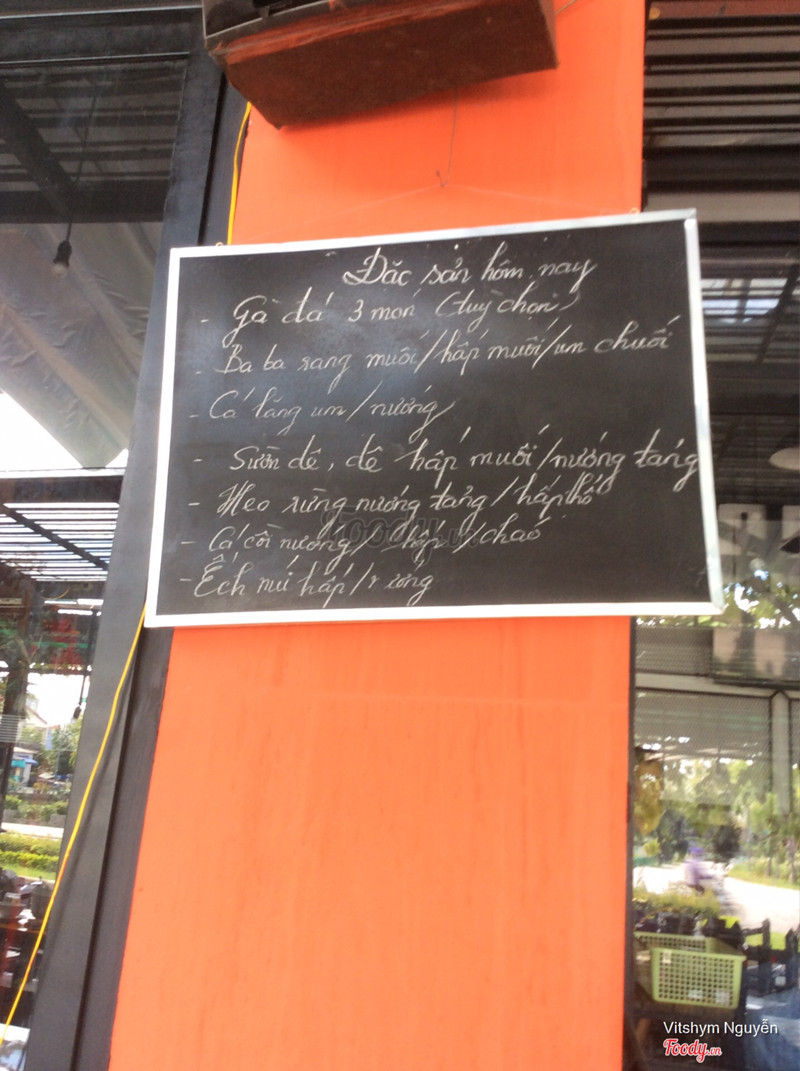 Đặc sản hôm nay
- Gà đá 3 món (tuỳ chọn)
- Ba ba rang muối/hấp muối/um chuối
- Cá lăng um/nướng
- Sườn dê, dê hấp muối/nướng tảng
- Heo rừng nướng tảng/hấp hố
- Cá cồi nướng/hấp/chao
- Ếch núi hấp/nướng
Foody.vn
Vitshym Nguyễn
Foody.vn